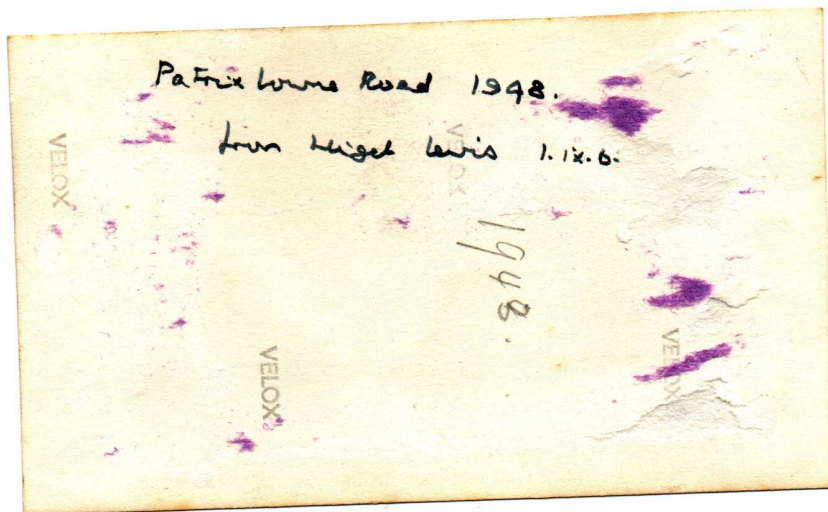 Patrixbourne Road 1948.
from Nigel Lewis 1.ix.6.
VELOX
VELOX
1948.
VELOX
VELOX